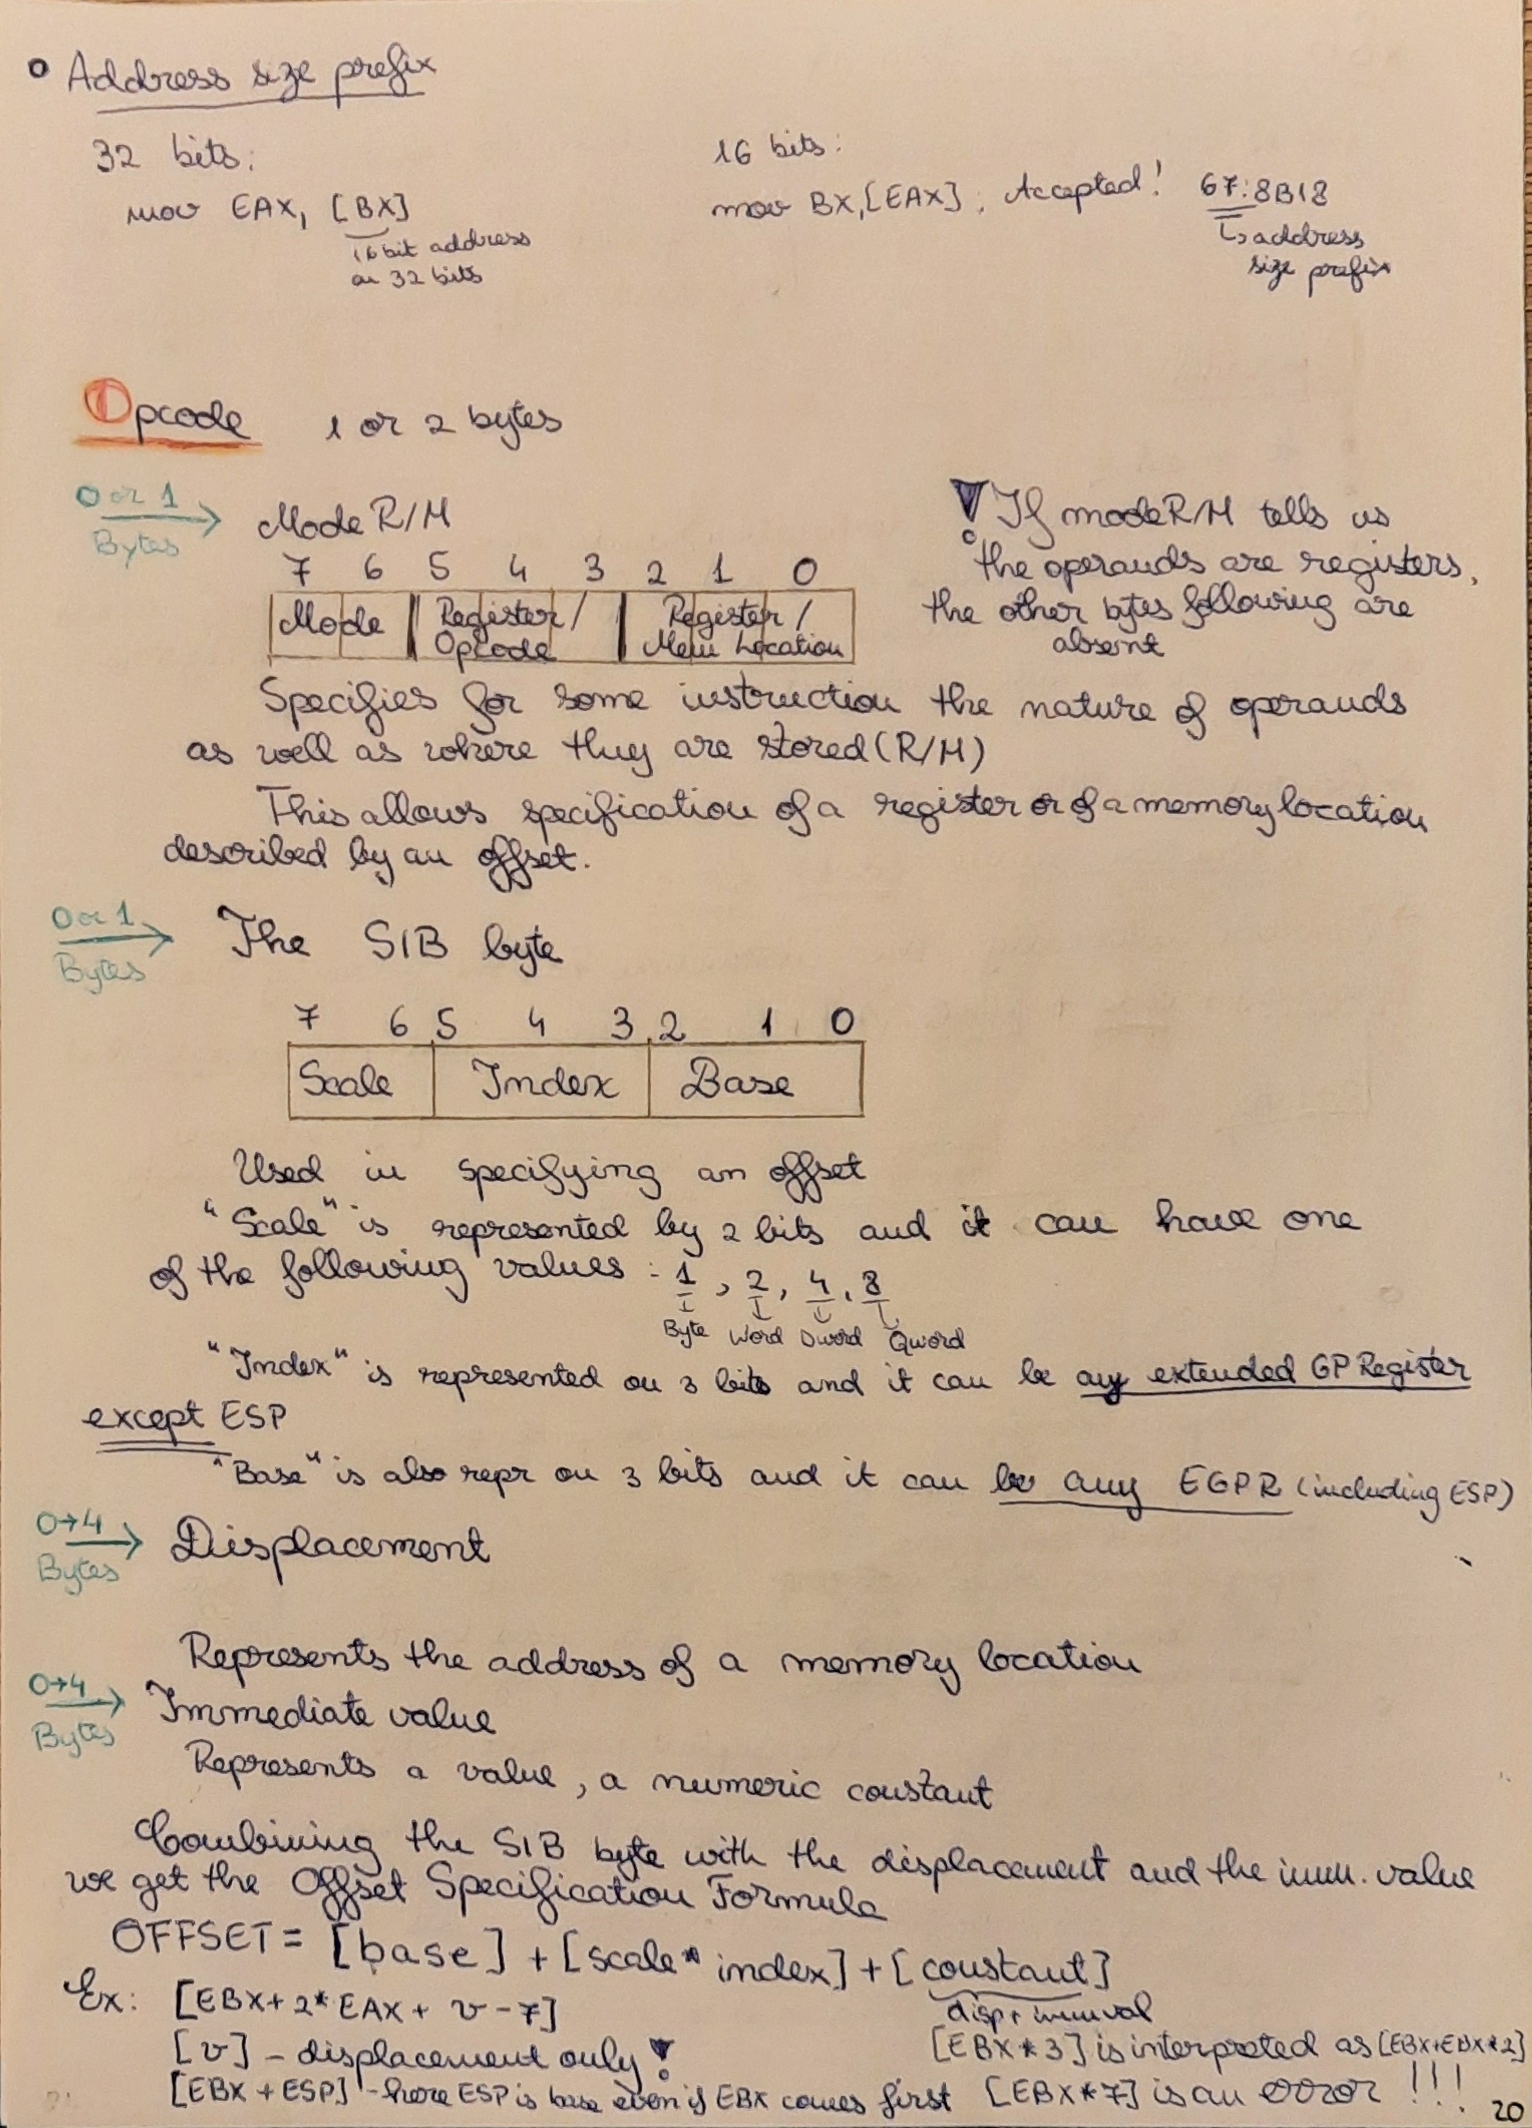 Address size prefix
32 bits:
mov EAX, [BX]
16 bit address
on 32 bits
16 bits:
mov BX,[EAX] ; Accepted! 67:8B18
address
size prefix
Opcode 1 or 2 bytes
0 or 1
Bytes
Mode R/M
7 6 5 4 3 2 1 0
Mode Register/ Register/
Opcode Mem Location
! If modeR/M tells us
the operands are registers,
the other bytes following are
absent
Specifies for some instruction the nature of operands
as well as where they are stored (R/M)
This allows specification of a register or of a memory location
described by an offset.
0 or 1
Bytes
The SIB byte
7 6 5 4 3 2 1 0
Scale Index Base
Used in specifying an offset
"Scale" is represented by 2 bits and it can have one
of the following values: 1, 2, 4, 8
Byte Word Dword Qword
"Index" is represented on 3 bits and it can be any extended GP Register
except ESP
"Base" is also repr on 3 bits and it can be any EGPR (including ESP)
0→4
Bytes
Displacement
Represents the address of a memory location
0→4
Bytes
Immediate value
Represents a value, a numeric constant
Combining the SIB byte with the displacement and the imm. value
we get the Offset Specification Formula
OFFSET = [base] + [scale * index] + [constant]
disp + imm val
Ex: [EBX+2*EAX + v - 7]
[v] - displacement only !
[EBX + ESP] - here ESP is base even if EBX comes first
[EBX*3] is interpreted as [EBX+EBX*2]
[EBX*7] is an error !!!
20